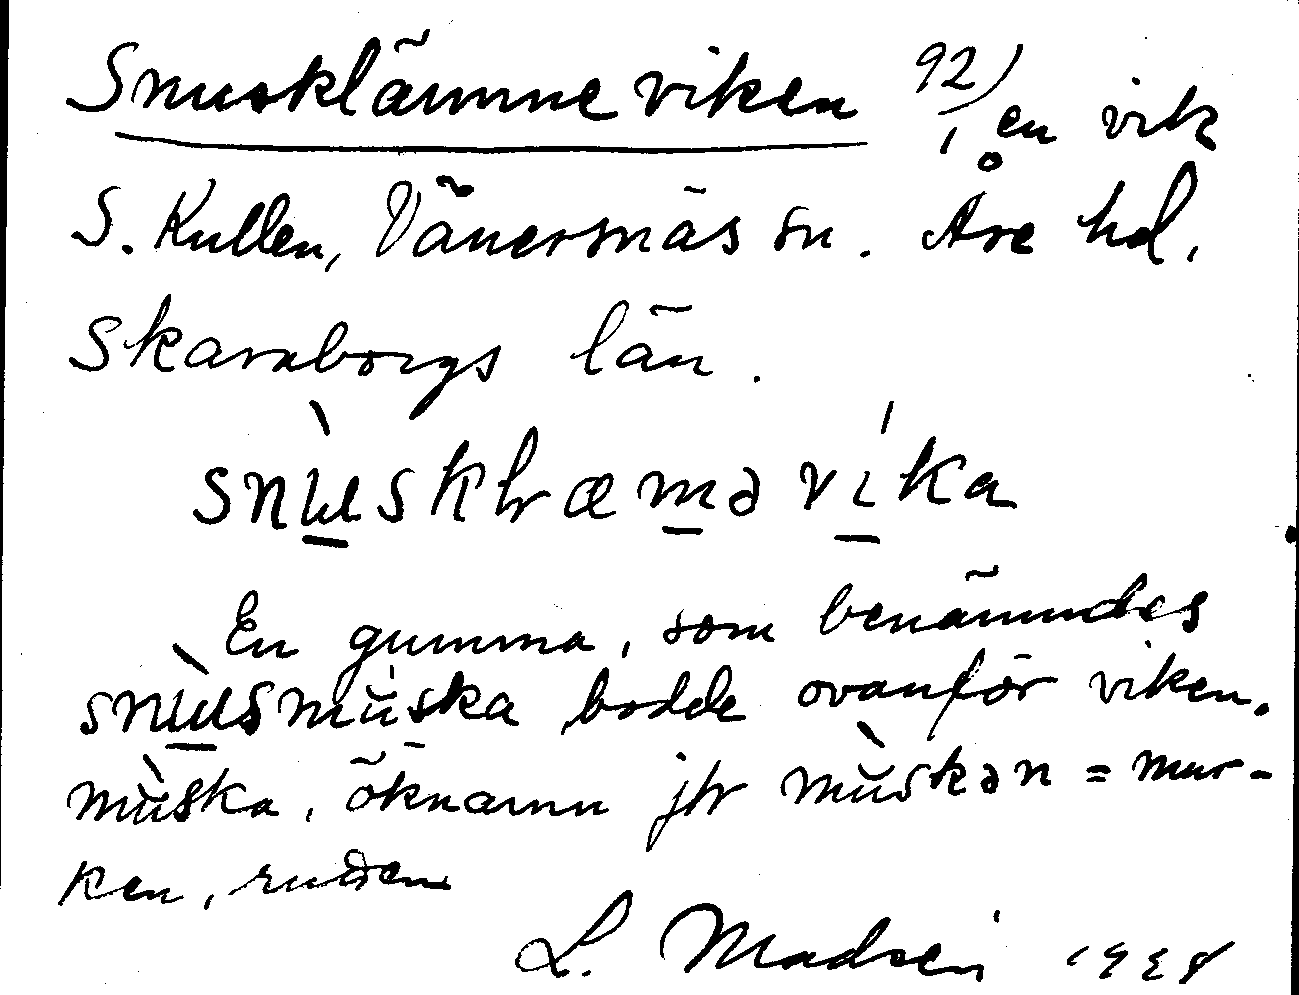 Snusklämneviken 92), en vik
S. Kullen, Vänersnäs sn. Åse hd,
Skaraborgs län.
snu̲sklræm̲ə vi̲ka
En gumma, som benämndes
snu̲smùska bodde ovanför viken.
mùska, öknamn jfr mùskən = mur-
ken, rutten
L. Madsen 1928